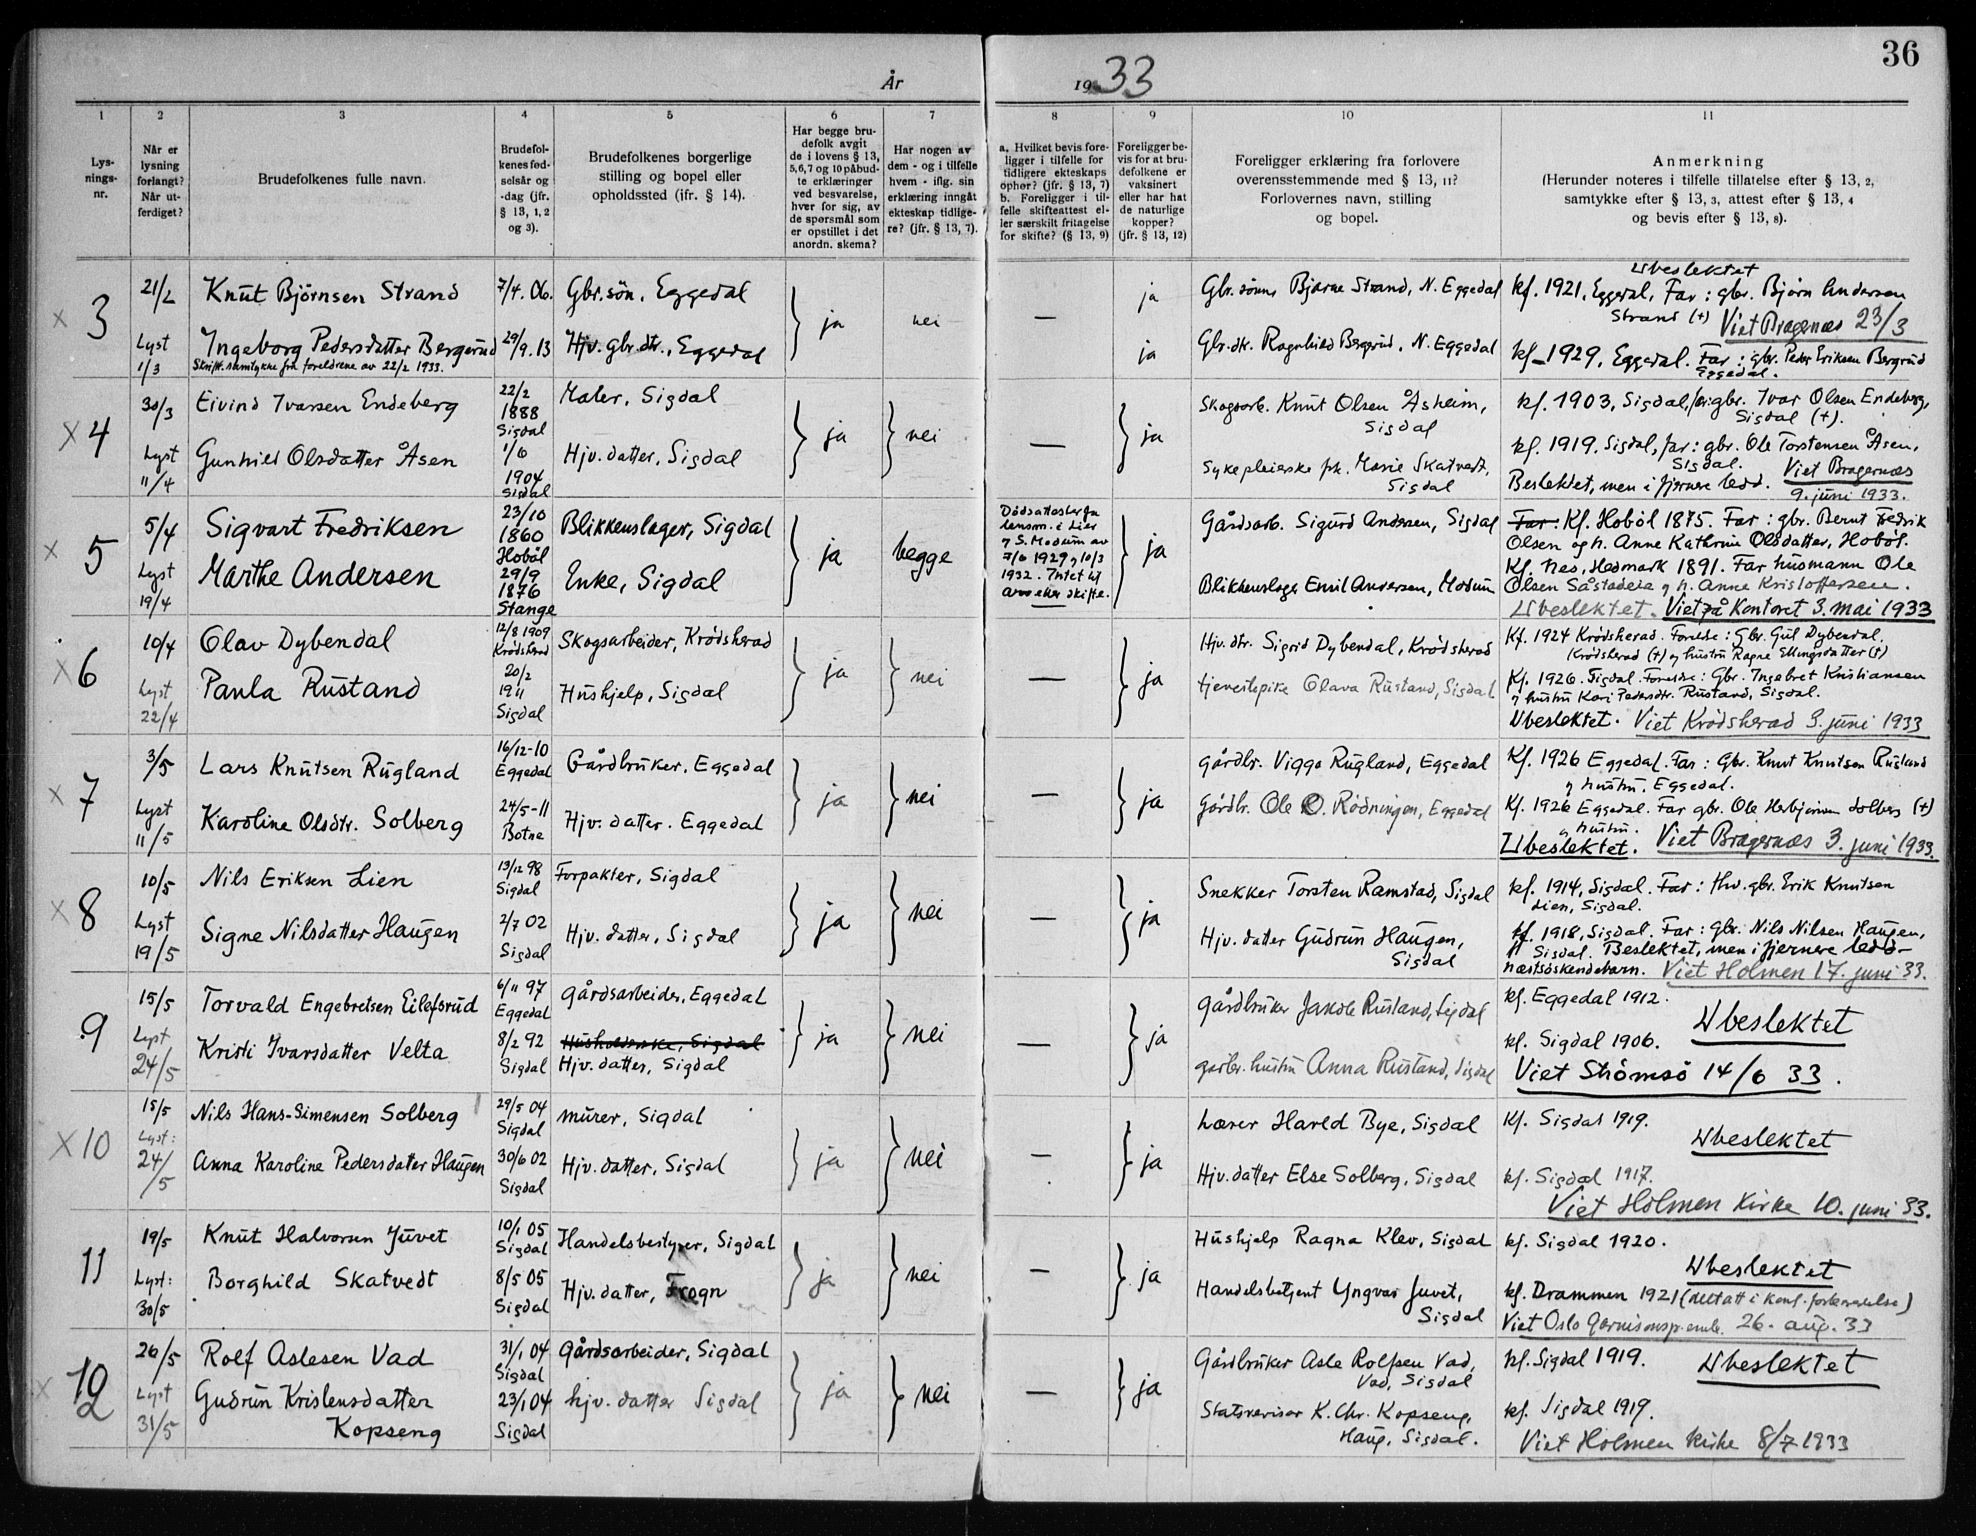 36
År
1933
1
2
3
4
5
6
7
8
9
10
11
Lys-
nings-
nr.
Når er
lysning
forlangt?
Når ut-
ferdiget?
Brudefolkenes fulle navn.
Brudefol-
kenes fød-
selsår og
-dag (jfr.
§ 13, 1, 2
og 3).
Brudefolkenes borgerlige
stilling og bopel eller
opholdssted (ifr. § 14).
Har begge bru-
defolk avgit
de i lovens § 13,
5,6,7 og 10 påbud-
te erklæringer
ved besvarelse,
hver for sig, av
de spørsmål som
er opstillet i det
anordn. skema?
Har nogen av
dem - og i tilfelle
hvem - iflg. sin
erklæring inngåt
ekteskap tidlige-
re? (jfr. § 13, 7).
a. Hvilket bevis fore-
ligger i tilfelle for
tidligere ekteskaps
ophør? (jfr. § 13, 7)
b. Foreligger i til-
felle skifteattest el-
ler særskilt fritagelse
for skifte? (§ 13, 9)
Foreligger be-
vis for at bru-
defolkene er
vaksinert
eller har hat
de naturlige
kopper?
(jfr. § 13, 12)
Foreligger erklæring fra forlovere
overensstemmende med § 13, 11?
Forlovernes navn, stilling
og bopel.
Anmerkning
(Herunder noteres i tilfelle tillatelse efter § 13, 2,
samtykke efter § 13, 3, attest efter § 13, 4
og bevis efter § 13, 8).
x 3
21/2
Lyst
1/3
Knut Björnsen Strand
Ingeborg Pedersdatter Bergerud
Skriftl. samtykke fra foreldrene av 22/2 1933.
7/4. 06.
29/9. 13
Gbr. sön, Eggedal
Hjv. gbr. dtr., Eggedal
ja
nei
—
ja
ja
Gbr. sönn Bjarne Strand, N. Eggedal
Gbr. dtr. Ragnhild Bergerud, N. Eggedal
Ubeslektet
kf. 1921, Eggedal, Far: gbr. Björn Andersen
Strand (+) Viet Bragernæs 23/3
kf. 1929, Eggedal. Far: gbr. Peder Eriksen Bergrud
Eggedal.
x 4
30/3
Lyst
11/4
Eivind Ivarsen Endeberg
Gunhild Olsdatter Åsen
22/2
1888
Sigdal
1/6
1904
Sigdal
Maler, Sigdal
Hjv. datter, Sigdal
ja
nei
—
ja
Skogsarb. Knut Olsen Åsheim,
Sigdal
Sykepleierske frk. Marie Skatvedt,
Sigdal
kf. 1903, Sigdal, far: gbr. Ivar Olsen Endeberg,
Sigdal (+).
kf. 1919, Sigdal, far: gbr. Ole Torstensen Åsen,
Sigdal. Viet Bragernæs
Beslektet, men i fjernere ledd. 9. juni 1933.
x 5
5/4
Lyst
19/4
Sigvart Fredriksen
Marthe Andersen
23/10
1860
Hobøl
29/9
1876
Stange
Blikkenslager, Sigdal
Enke, Sigdal
ja
begge
Dödsattester fra
lensm. i Lier
og S. Modum av
7/6 1929 og 10/3
1932. Intet til
arv eller skifte.
—
ja
Gårdsarb. Sigurd Andersen, Sigdal
Blikkenslager Emil Andersen, Modum
Far: Kf. Hobøl 1875. Far: gbr. Bernt Fredrik
Olsen og h. Anne Kathrine Olsdatter, Hobøl.
Kf. Nes, Hedmark 1891. Far husmann Ole
Olsen Såstadeie og h. Anne Kristoffersen.
Ubeslektet. Viet på kontoret 3. mai 1933
x 6
10/4
Lyst
22/4
Olav Dybendal
Paula Rustand
12/8 1909
Krödsherad
20/2
1911
Sigdal
Skogsarbeider, Krödsherad
Hushjelp, Sigdal
ja
nei
—
ja
Hjv. dtr. Sigrid Dybendal, Krödsherad
tjenestepike Olava Rustand, Sigdal
Kf. 1924 Krödsherad. Foreldre: Gbr. Gul Dybendal,
Krödsherad (+) og hustru Ragne Ellingsdatter (+)
Kf. 1926. Sigdal. Foreldre: Gbr. Ingebret Kristiansen
og hustru Kari Pedersdtr. Rustand, Sigdal.
Ubeslektet. Viet Krödsherad 3. juni 1933
x 7
3/5
Lyst
11/5
Lars Knutsen Rugland
Karoline Olsdtr. Solberg
16/12-10
Eggedal
24/5-11
Botne
Gårdbruker, Eggedal
Hjv. datter. Eggedal
ja
nei
—
ja
gårdbr. Viggo Rugland, Eggedal
Gårdbr. Ole O. Rödningen, Eggedal
Kf. 1926 Eggedal. Far: Gbr. Knut Knutsen Rugland
og hustru, Eggedal.
Kf. 1926 Eggedal. Far gbr. Ole Herbjörnsen Solberg (+)
og hustru.
Ubeslektet. Viet Bragernæs 3. juni 1933.
x 8
10/5
Lyst
19/5
Nils Eriksen Lien
Signe Nilsdatter Haugen
13/12 98
Sigdal
2/7 02
Sigdal
Forpakter, Sigdal
Hjv. datter, Sigdal
ja
nei
—
ja
Snekker Torsten Ramstad, Sigdal
Hjv. datter Gudrun Haugen,
Sigdal
kf. 1914, Sigdal. Far: fhv. gbr. Erik Knutsen
Lien, Sigdal.
kf. 1918, Sigdal. Far: gbr. Nils Nilsen Haugen,
Sigdal. Beslektet, men i fjernere ledd—
næstsöskendebarn. Viet Holmen 17. juni 33.
9
15/5
Lyst
24/5
Torvald Engebretsen Eilefsrud
Kristi Ivarsdatter Velta
6/11 97
Eggedal
8/2 92
Sigdal
gårdsarbeider, Eggedal
Husholderske, Sigdal
Hjv. datter, Sigdal
ja
nei
—
ja
gårdbruker Jakob Rustand, Sigdal
gårbr. hustru Anna Rustand, Sigdal
kf. Eggedal 1912.
Ubeslektet
kf. Sigdal 1906.
Viet Strömsö 14/6 33.
x 10
15/5
Lyst:
24/5
Nils Hans-Simensen Solberg
Anna Karoline Pedersdatter Haugen
29/5 04
Sigdal
30/6 02
Sigdal
murer, Sigdal
Hjv. datter, Sigdal
ja
nei
—
ja
Lærer Harald Bye, Sigdal
Hjv. datter Else Solberg, Sigdal
Kf. Sigdal 1919.
Ubeslektet
kf. Sigdal 1917.
Viet Holmen Kirke 10. juni 33.
11
19/5
Lyst:
30/5
Knut Halvorsen Juvet
Borghild Skatvedt
10/1 05
Sigdal
8/5 05
Sigdal
Handelsbestyrer, Sigdal
Hjv. datter, Frogn
ja
nei
—
ja
Hushjelp Ragna Klev, Sigdal
Handelsbetjent Yngvar Juvet,
Sigdal
kf. Sigdal 1920.
Ubeslektet
kf. Drammen 1921 (deltatt i konf.-forberedelse)
Viet Oslo Garnisonspr.emb. 26. aug. 33
x 12
26/5
Lyst
31/5
Rolf Aslesen Vad
Gudrun Kristensdatter
Kopseng
31/1 04
Sigdal
23/1 04
Sigdal
gårdsarbeider, Sigdal
hjv. datter Sigdal
ja
nei
—
ja
Gårdbruker Asle Rolfsen Vad,
Vad, Sigdal
Statsrevisor K. Chr. Kopseng,
Haug, Sigdal.
kf. Sigdal 1919. Ubeslektet
kf. Sigdal 1919.
Viet Holmen kirke 8/7 1933